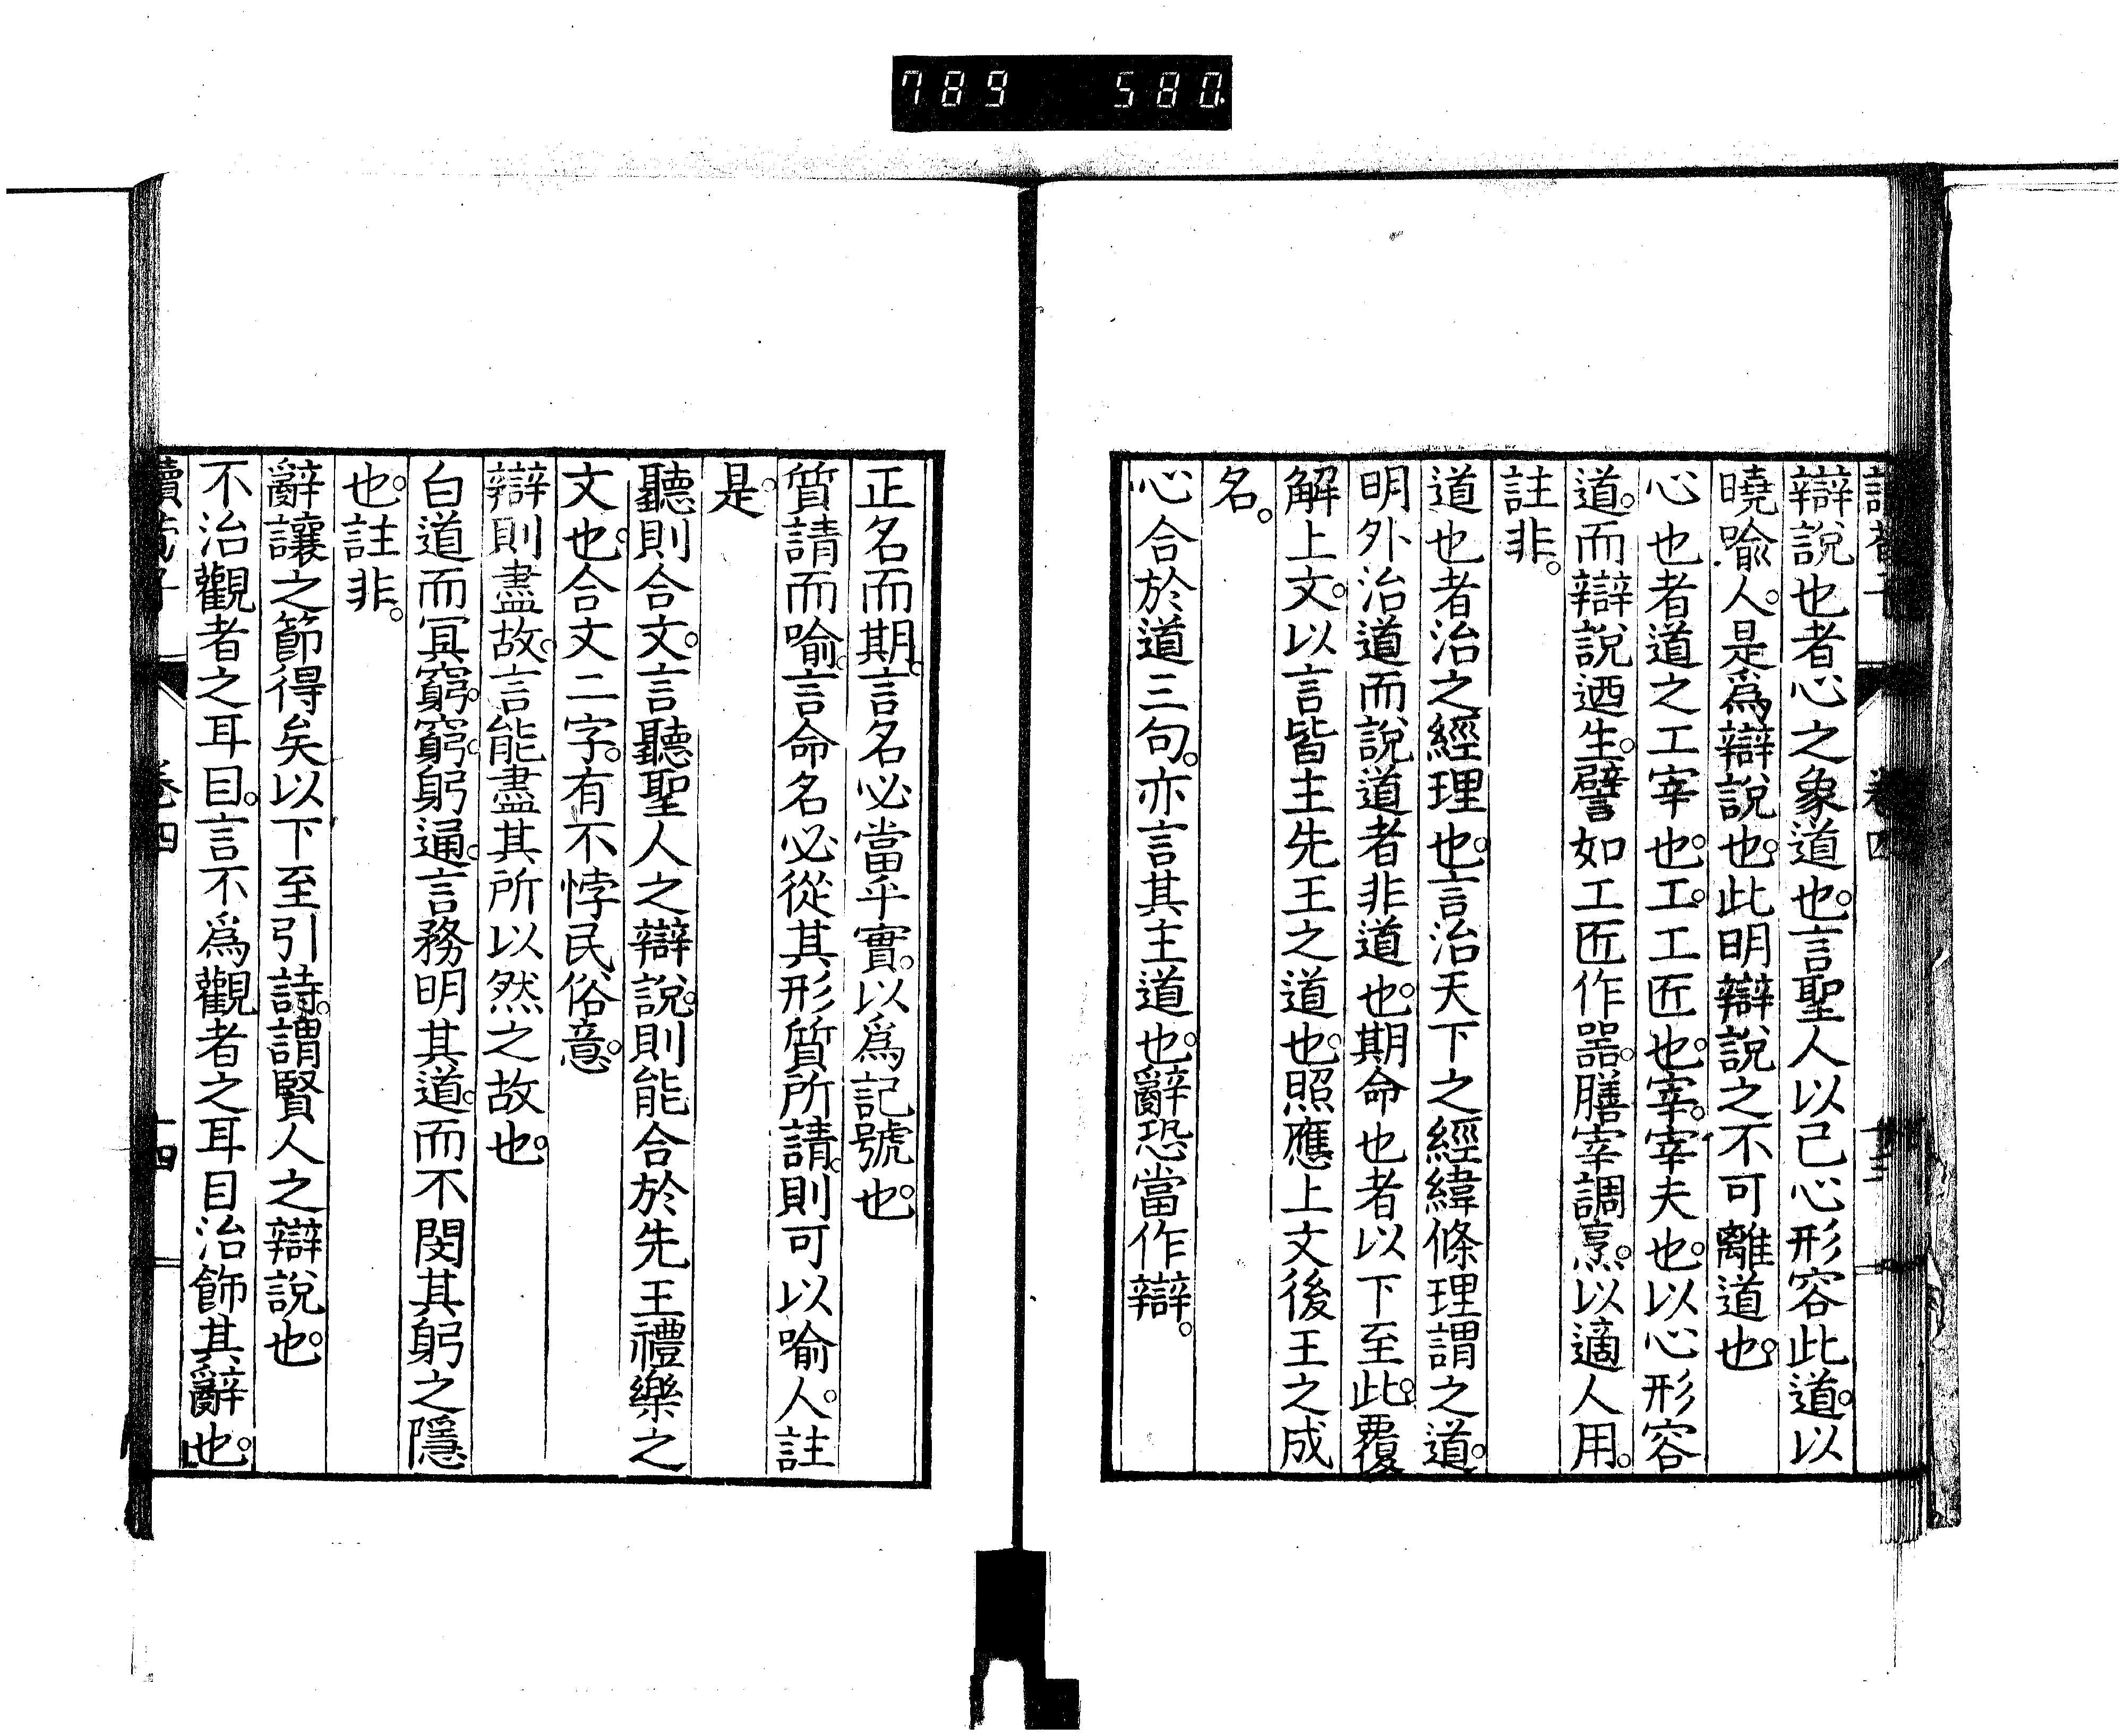 789 580
辯說也者心之象道也。言聖人以己心形容此道。以
曉喩人。是爲辯說也。此明辯說之不可離道也。
心也者道之工宰也。工。工匠也。宰。宰夫也。以心形容
道。而辯說迺生。譬如工匠作器。膳宰調烹。以適人用。
註非。
道也者治之經理也。言治天下之經緯條理謂之道。
明外治道而說道者非道也。期命也者以下至此。覆
解上文。以言皆主先王之道也。照應上文後王之成
名。
心合於道三句。亦言其主道也。辭恐當作辯。
正名而期。言名必當乎實。以爲記號也。
質請而喻。言命名必從其形質所請。則可以喻人。註
是。
聽則合文。言聽聖人之辯說。則能合於先王禮樂之
文也。合文二字。有不悖民俗意。
辯則盡故。言能盡其所以然之故也。
白道而冥窮。窮。躬通。言務明其道。而不閔其躬之隱
也。註非。
辭讓之節得矣以下至引詩。謂賢人之辯說也。
不治觀者之耳目。言不爲觀者之耳目治飾其辭也。
卷四